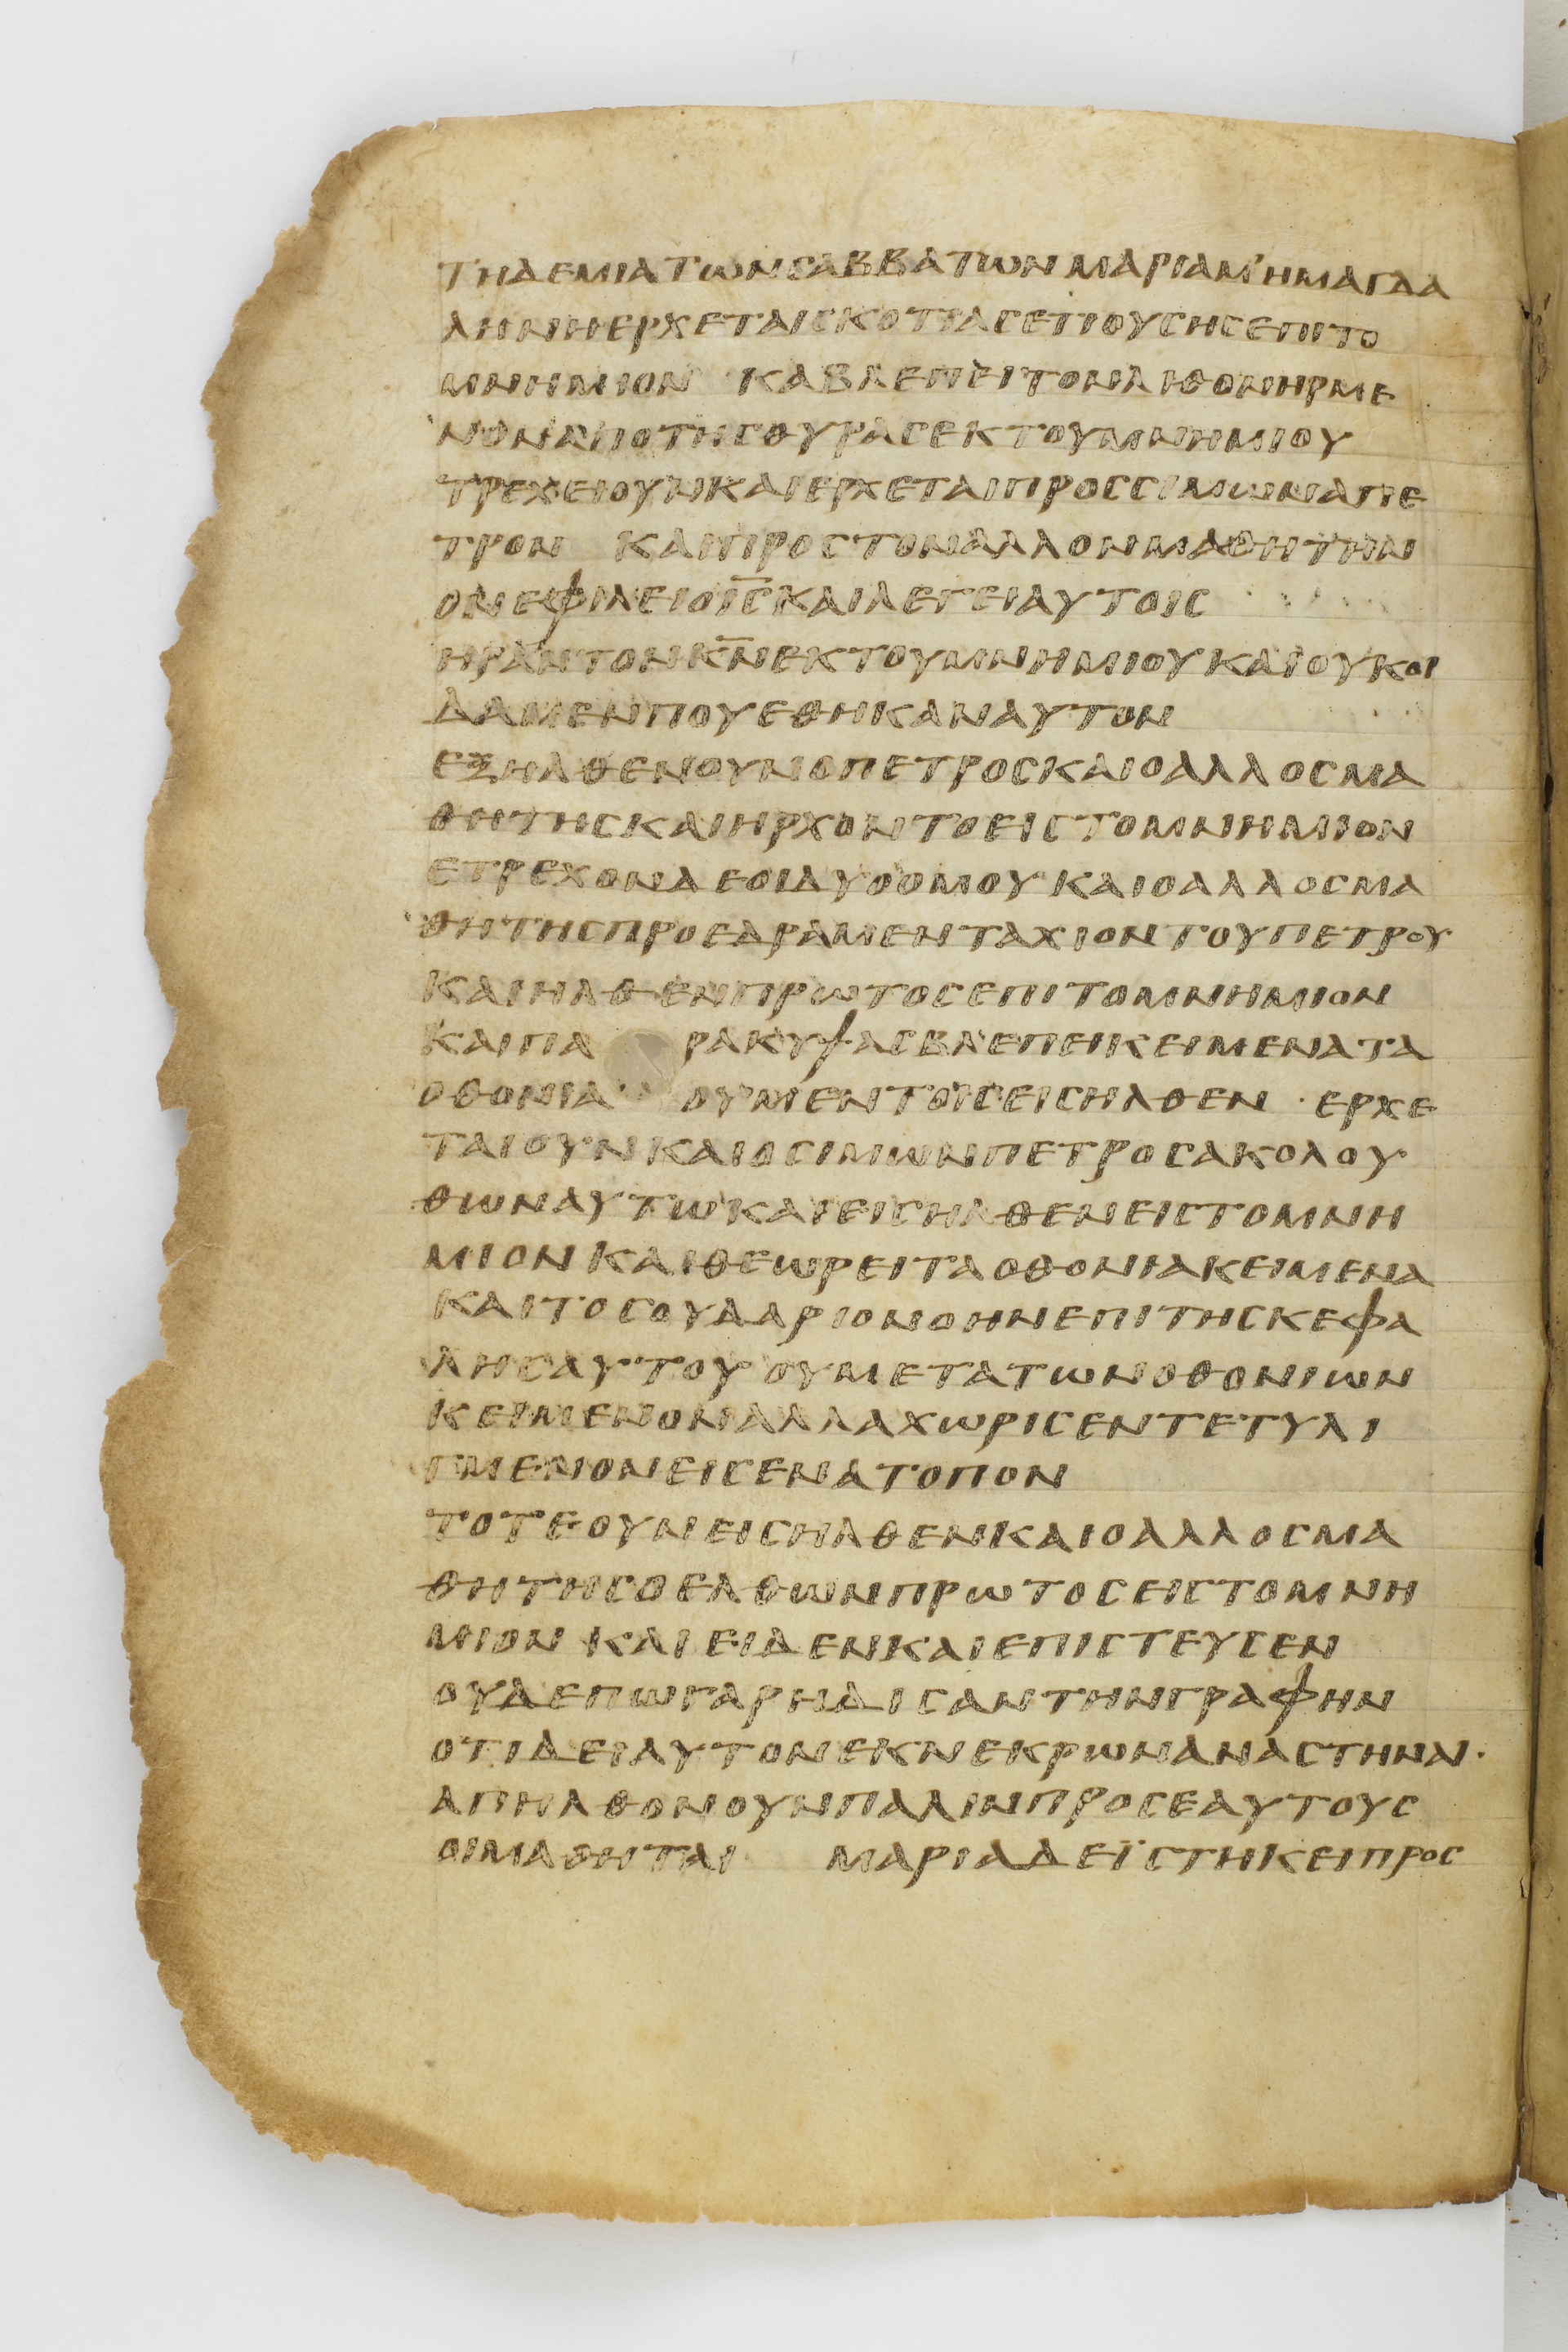 ΤΗΔΕΜΙΑΤΩΝCΑΒΒΑΤΩΝΜΑΡΙΑΜʼΗΜΑΓΔΑ
ΛΗΝΗΕΡΧΕΤΑΙCΚΟΤΙΑCΕΤΙΟΥCΗCΕΠΙΤΟ
ΜΝΗΜΙΟΝ ΚΑΒΛΕΠΕΙΤΟΝΛΙΘΟΝΗΡΜΕ
ΝΟΝΑΠΟΤΗCΘΥΡΑCΕΚΤΟΥΜΝΗΜΙΟΥ
ΤΡΕΧΕΙΟΥΝΚΑΙΕΡΧΕΤΑΙΠΡΟCCΙΜΩΝΑΠΕ
ΤΡΟΝ ΚΑΙΠΡΟCΤΟΝΑΛΛΟΝΜΑΘΗΤΗΝ
ΟΝΕΦΙΛΕΙΟΙ̅C̅ΚΑΙΛΕΓΕΙΑΥΤΟΙC
ΗΡΑΝΤΟΝΚ̅Ν̅ΕΚΤΟΥΜΝΗΜΙΟΥΚΑΙΟΥΚΟΙ
ΔΑΜΕΝΠΟΥΕΘΗΚΑΝΑΥΤΟΝ
ΕΞΗΛΘΕΝΟΥΝΟΠΕΤΡΟCΚΑΙΟΑΛΛΟCΜΑ
ΘΗΤΗCΚΑΙΗΡΧΟΝΤΟΕΙCΤΟΜΝΗΜΙΟΝ
ΕΤΡΕΧΟΝΔΕΟΙΔΥΟΟΜΟΥΚΑΙΟΑΛΛΟCΜΑ
ΘΗΤΗCΠΡΟΕΔΡΑΜΕΝΤΑΧΙΟΝΤΟΥΠΕΤΡΟΥ
ΚΑΙΗΛΘΕΝΠΡΩΤΟCΕΠΙΤΟΜΝΗΜΙΟΝ
ΚΑΙΠΑ ΡΑΚΥΨΑCΒΛΕΠΕΙΚΕΙΜΕΝΑΤΑ
ΟΘΟΝΙΑ· ΟΥΜΕΝΤΟΙCΕΙCΗΛΘΕΝ · ΕΡΧΕ
ΤΑΙΟΥΝΚΑΙΟCΙΜΩΝΠΕΤΡΟCΑΚΟΛΟΥ
ΘΩΝΑΥΤΩΚΑΙΕΙCΗΛΘΕΝΕΙCΤΟΜΝΗ
ΜΙΟΝΚΑΙΘΕΩΡΕΙΤΑΟΘΟΝΙΑΚΕΙΜΕΝΑ
ΚΑΙΤΟCΟΥΔΑΡΙΟΝΟΗΝΕΠΙΤΗCΚΕΦΑ
ΛΗCΑΥΤΟΥΟΥΜΕΤΑΤΩΝΟΘΟΝΙΩΝ
ΚΕΙΜΕΝΟΝΑΛΛΑΧΩΡΙCΕΝΤΕΤΥΛΙ
ΓΜΕΝΟΝΕΙCΕΝΑΤΟΠΟΝ
ΤΟΤΕΟΥΝΕΙCΗΛΘΕΝΚΑΙΟΑΛΛΟCΜΑ
ΘΗΤΗCΟΕΛΘΩΝΠΡΩΤΟCΕΙCΤΟΜΝΗ
ΜΙΟΝΚΑΙΕΙΔΕΝΚΑΙΕΠΙCΤΕΥCΕΝ
ΟΥΔΕΠΩΓΑΡΗΔΙCΑΝΤΗΝΓΡΑΦΗΝ
ΟΤΙΔΕΙΑΥΤΟΝΕΚΝΕΚΡΩΝΑΝΑCΤΗΝΑΙ·
ΑΠΗΛΘΟΝΟΥΝΠΑΛΙΝΠΡΟCΕΑΥΤΟΥC
ΟΙΜΑΘΗΤΑΙ ΜΑΡΙΑΔΕΪCΤΗΚΕΙΠΡΟC